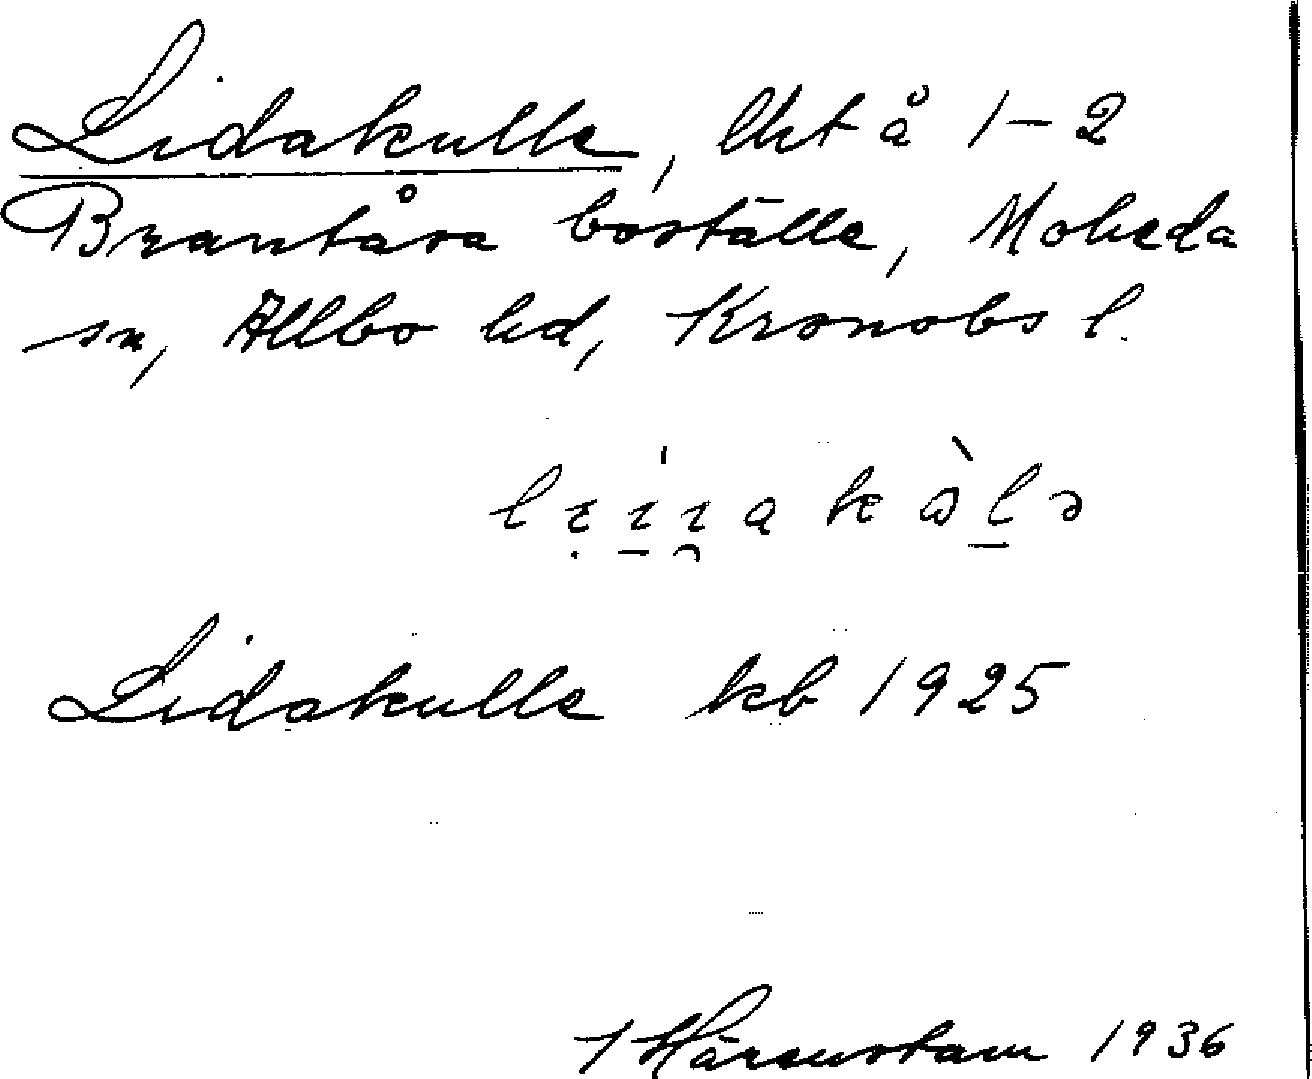 Lidakulle, lht å 1-2
Brantåsa boställe, Moheda
sn, Allbo hd, Kronobs l.
Lidakulle kb 1925
Härenstam 1936